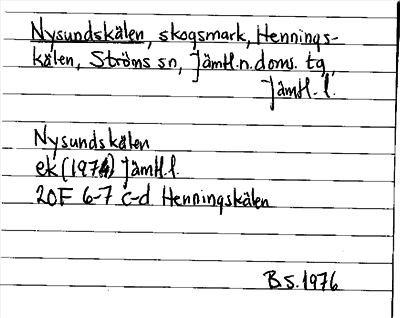 Nysundskälen, skogsmark, Hennings-
kälen, Ströms sn, Jämtl.n.doms. tg,
Jämtl. l.
Nysundskälen
ek (1974) Jämtl.l.
20F 6-7 c-d Henningskälen
BS.1976